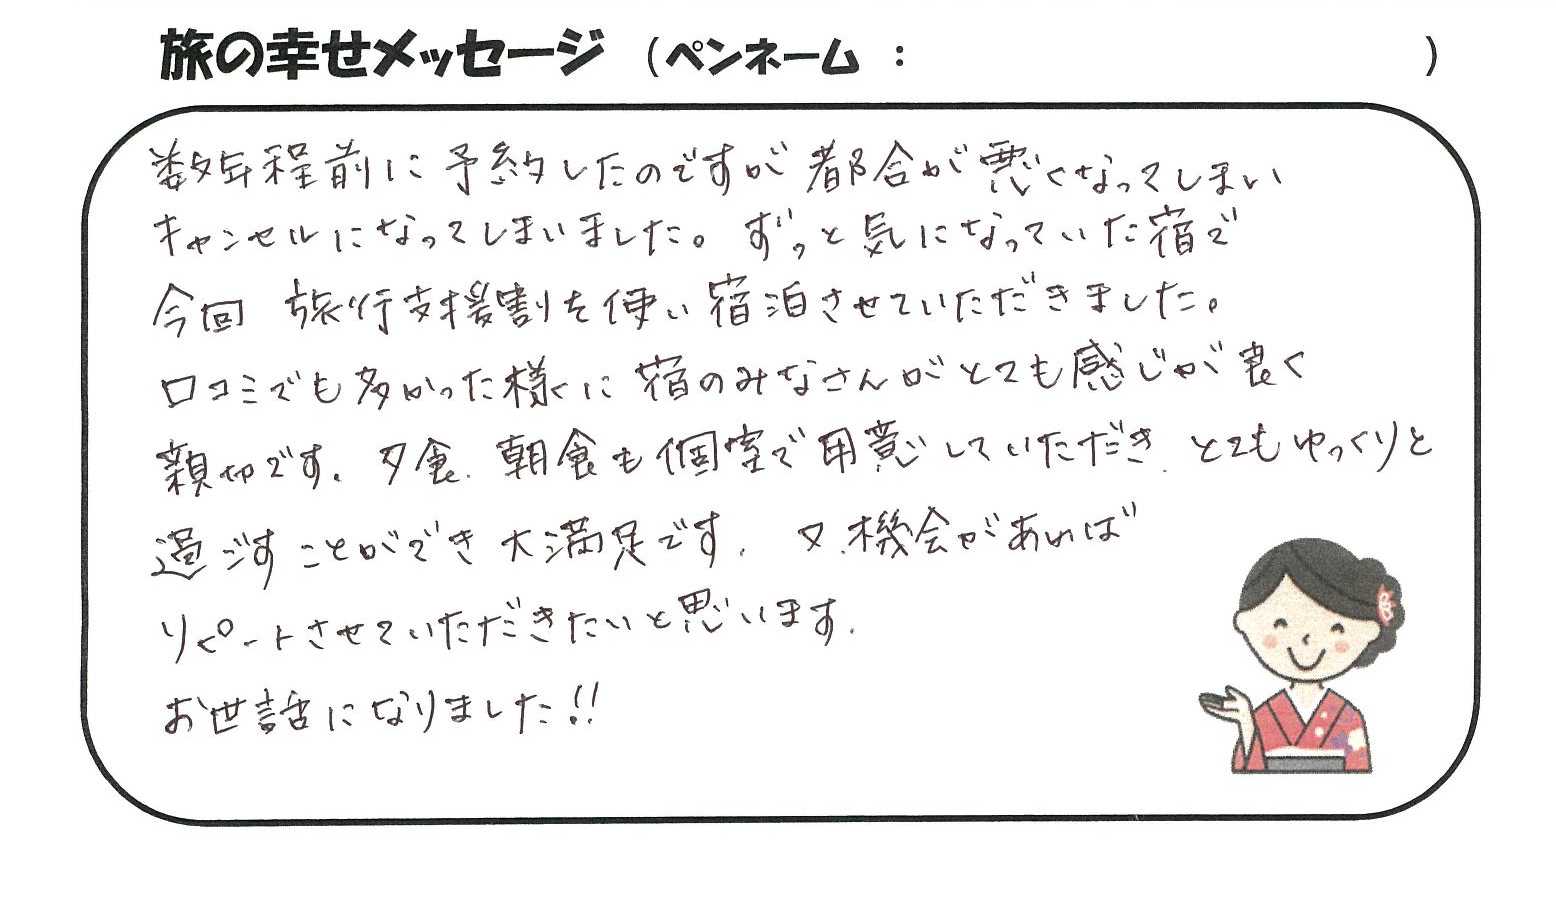 旅の幸せメッセージ （ペンネーム ： ）
数年程前に予約したのですが都合が悪くなってしまい
キャンセルになってしまいました。ずっと気になっていた宿で
今回 旅行支援割を使い宿泊させていただきました。
口コミでも多かった様に宿のみなさんがとても感じが良く
親切です。夕食、朝食も個室で用意していただき、とてもゆっくりと
過ごすことができ大満足です。又、機会があれば
リピートさせていただきたいと思います。
お世話になりました!!